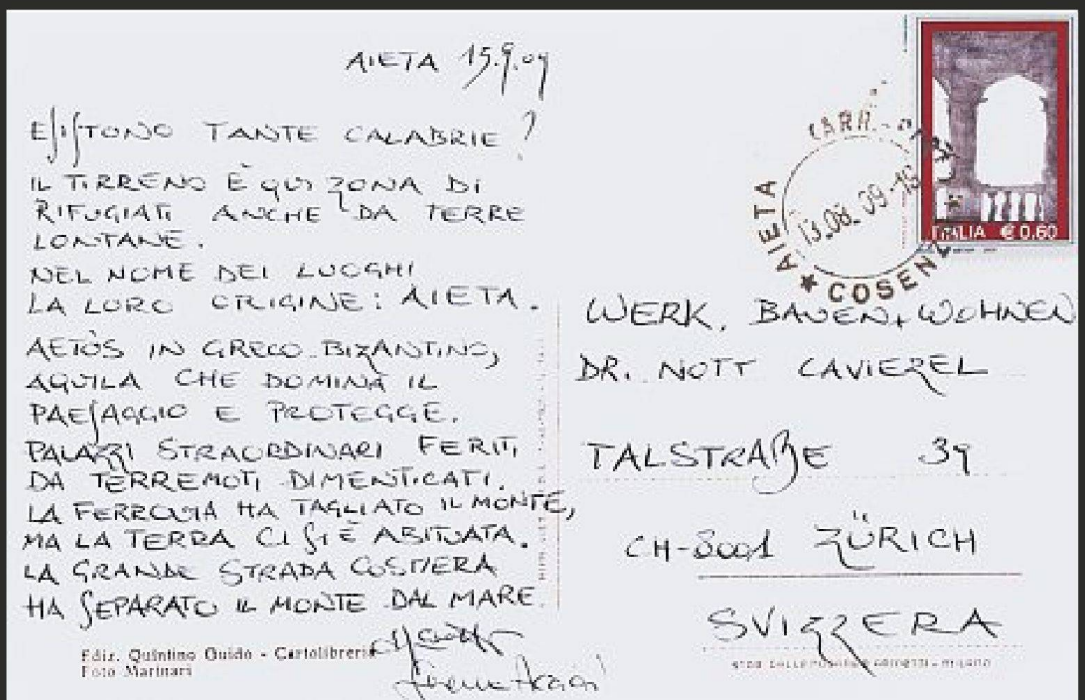 AIETA 15.9.09
ESISTONO TANTE CALABRIE?
IL TIRRENO È QUI ZONA DI
RIFUGIATI ANCHE DA TERRE
LONTANE.
NEL NOME DEI LUOGHI
LA LORO ORIGINE: AIETA.
AETÒS IN GRECO-BIZANTINO,
AQUILA CHE DOMINA IL
PAESAGGIO E PROTEGGE.
PALAZZI STRAORDINARI FERITI
DA TERREMOTI DIMENTICATI.
LA FERROVIA HA TAGLIATO IL MONTE,
MA LA TERRA CI SI È ABITUATA.
LA GRANDE STRADA COSTIERA
HA SEPARATO IL MONTE DAL MARE.
Ediz. Quintino Guido - Cartolibreria
Foto Marinari
ITALIA € 0,60
AIETA
13.08.09-18
★ COSENZA
WERK, BAUEN + WOHNEN
DR. NOTT CAVIEZEL
TALSTRAßE 39
CH-8001 ZÜRICH
SVIZZERA